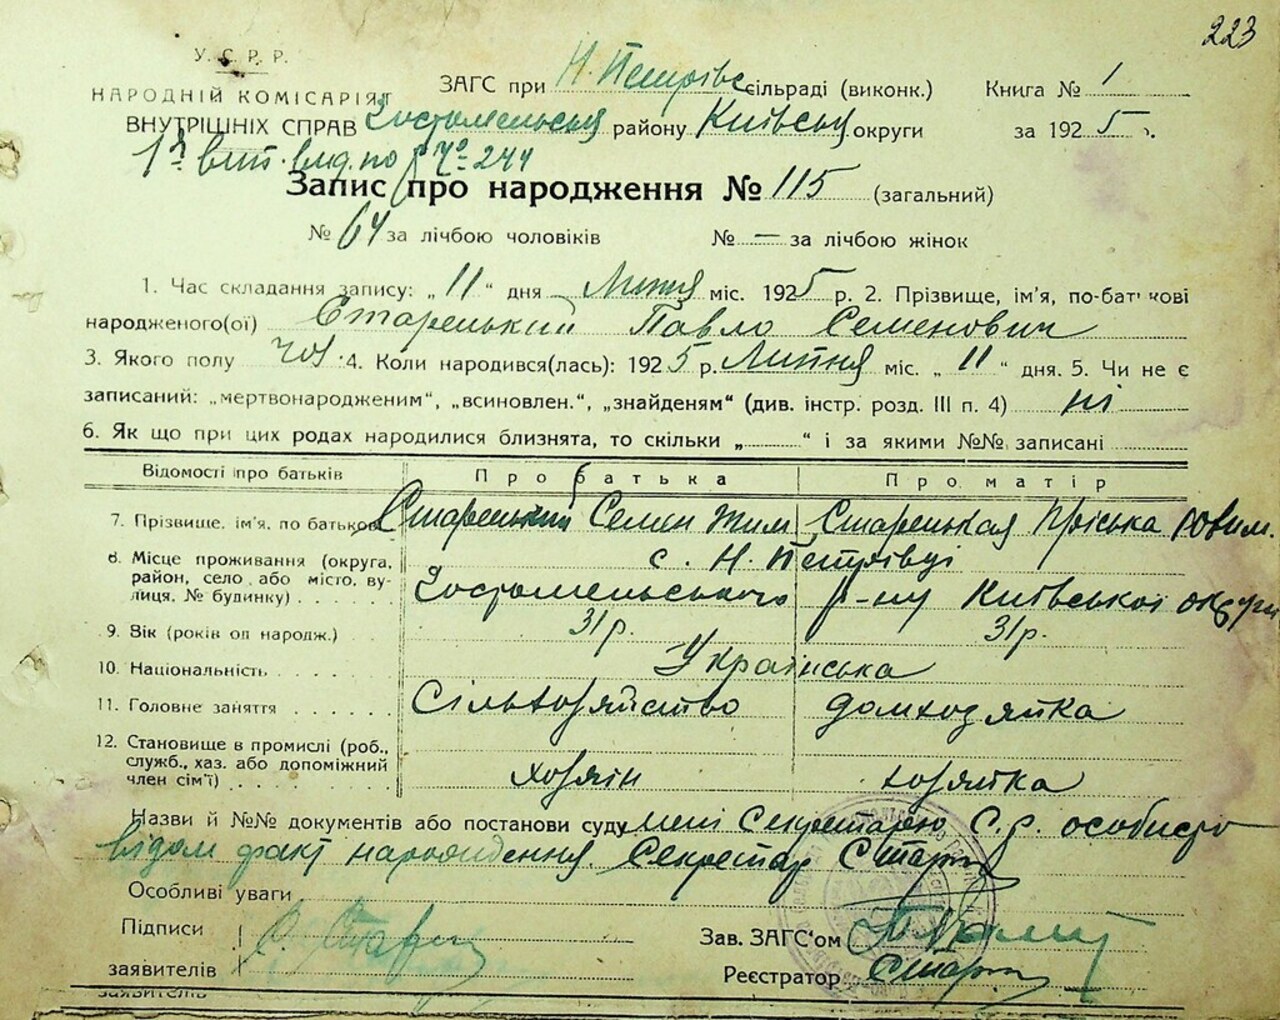 223
У.С.Р.Р.
НАРОДНІЙ КОМІСАРІЯТ ЗАГС при Н. Петрівс сільраді (виконк.) Книга № 1
ВНУТРІШНІХ СПРАВ Гостомельськ району Київськ округи за 1925 р.
1й вит. вид. по № 244
Запис про народження № 115 (загальний)
№ 64 за лічбою чоловіків № — за лічбою жінок
1. Час складання запису: „11“ дня Липня міс. 1925 р. 2. Прізвище, ім'я, по-батькові
народженого(ої) Старецький Павло Семенович
3. Якого полу чол. 4. Коли народився(лась): 1925 р. Липня міс. „11“ дня. 5. Чи не є
записаний: „мертвонародженим“, „всиновлен.“, „знайденям“ (див. інстр. розд. III п. 4) ні
6. Як що при цих родах народилися близнята, то скільки „ “ і за якими №№ записані
Відомості про батьків Про батька Про матір
7. Прізвище, ім'я, по батькові Старецький Семен Старецькая Пріська
8. Місце проживання (округа, с. Н. Петрівці
район, село або місто, ву- Гостомельського р-ну Київської округи
лиця, № будинку)
9. Вік (років од народж.) 31 р. 31 р.
10. Національність Українська
11. Головне заняття Сільхозяйство домхозяйка
12. Становище в промислі (роб.,
служб., хаз. або допоміжний
член сім'ї) хозяін хозяйка
Назви й №№ документів або постанови суду мені Секретарю С.р. особисто
відом факт народження. Секретар
Особливі уваги
Підписи
Зав. ЗАГС'ом
заявителів Реєстратор
заявителів